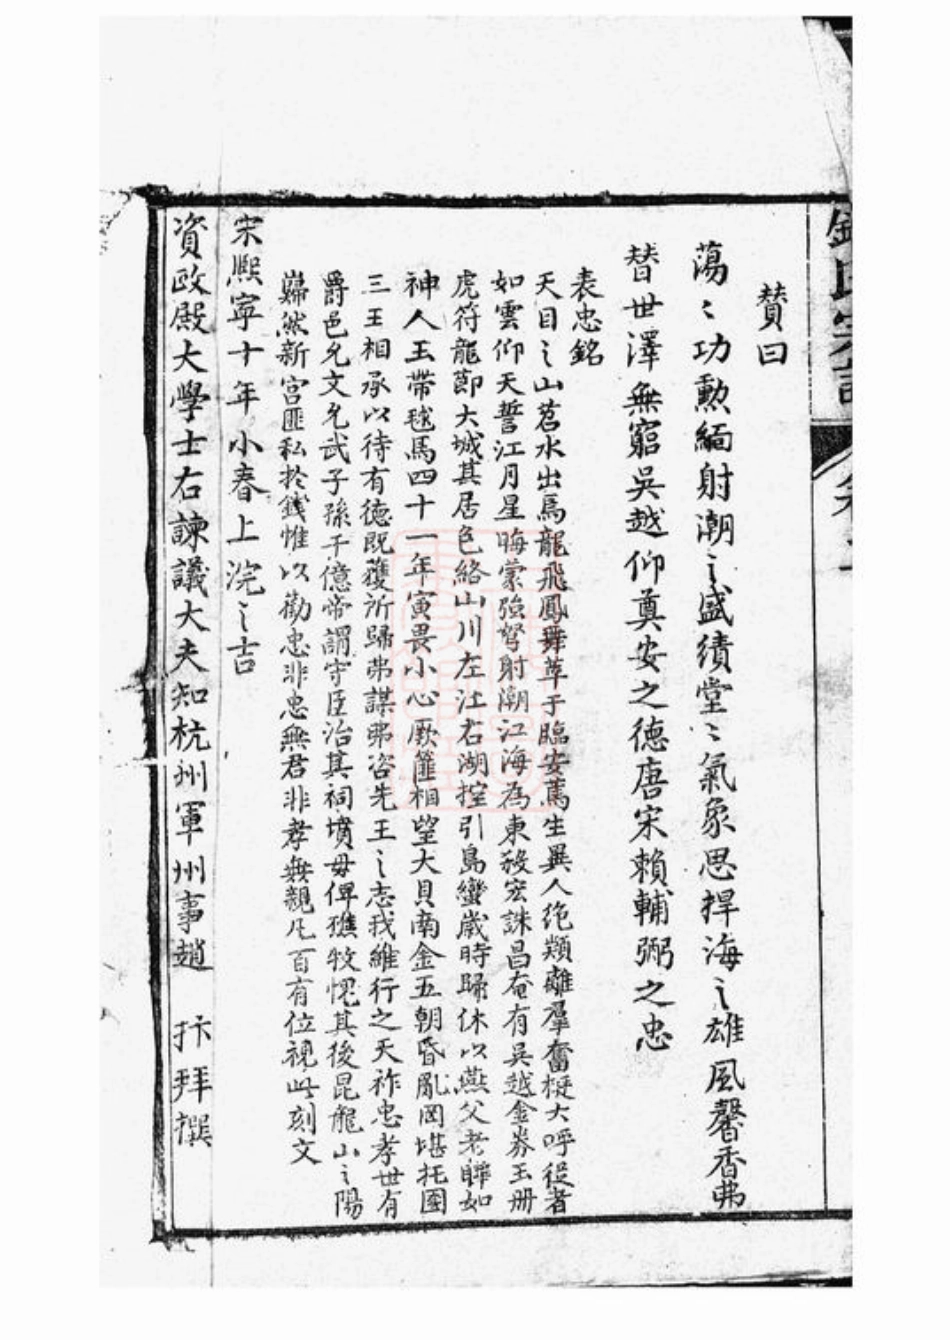 贊曰
蕩〻功勲緬射潮之盛績堂〻氣象思捍海之雄風馨香弗
替世澤無窮吳越仰奠安之德唐宋賴輔弼之忠
表忠銘
天目之山苕水出焉龍飛鳳舞萃于臨安篤生異人絶類離羣奮梃大呼從者
如雲仰天誓江月星晦蒙強弩射潮江海為東殺宏誅昌奄有吳越金券玉册
虎符龍節大城其居包絡山川左江右湖控引島蠻歲時歸休以燕父老曄如
神人玉帶毬馬四十一年寅畏小心厥篚相望大貝南金五朝昏亂罔堪托國
三王相承以待有德既獲所歸弗謀弗咨先王之志我維行之天祚忠孝世有
爵邑允文允武子孫千億帝謂守臣治其祠墳毋俾樵牧愧其後昆龍山之陽
巋然新宫匪私於錢惟以勸忠非忠無君非孝無親凡百有位視此刻文
宋熈寧十年小春上浣之吉
資政殿大學士右諫議大夫知杭州軍州事趙 抃拜撰